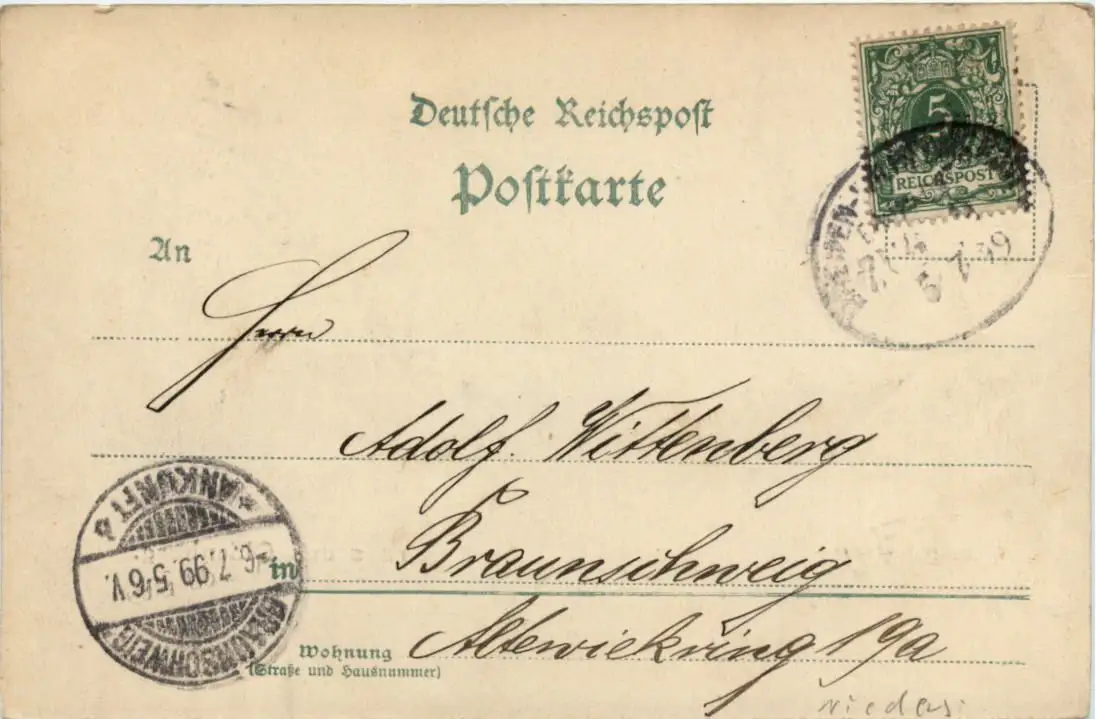 Deutsche Reichspost
Postkarte
5
REICHSPOST
An
Herrn
Adolf. Wittenberg
in Braunschweig
Wohnung Altewiekring 19a
(Straße und Hausnummer)
ANKUNFT
6.7.99. 5-6 V.
BRAUNSCHWEIG
5 7 99